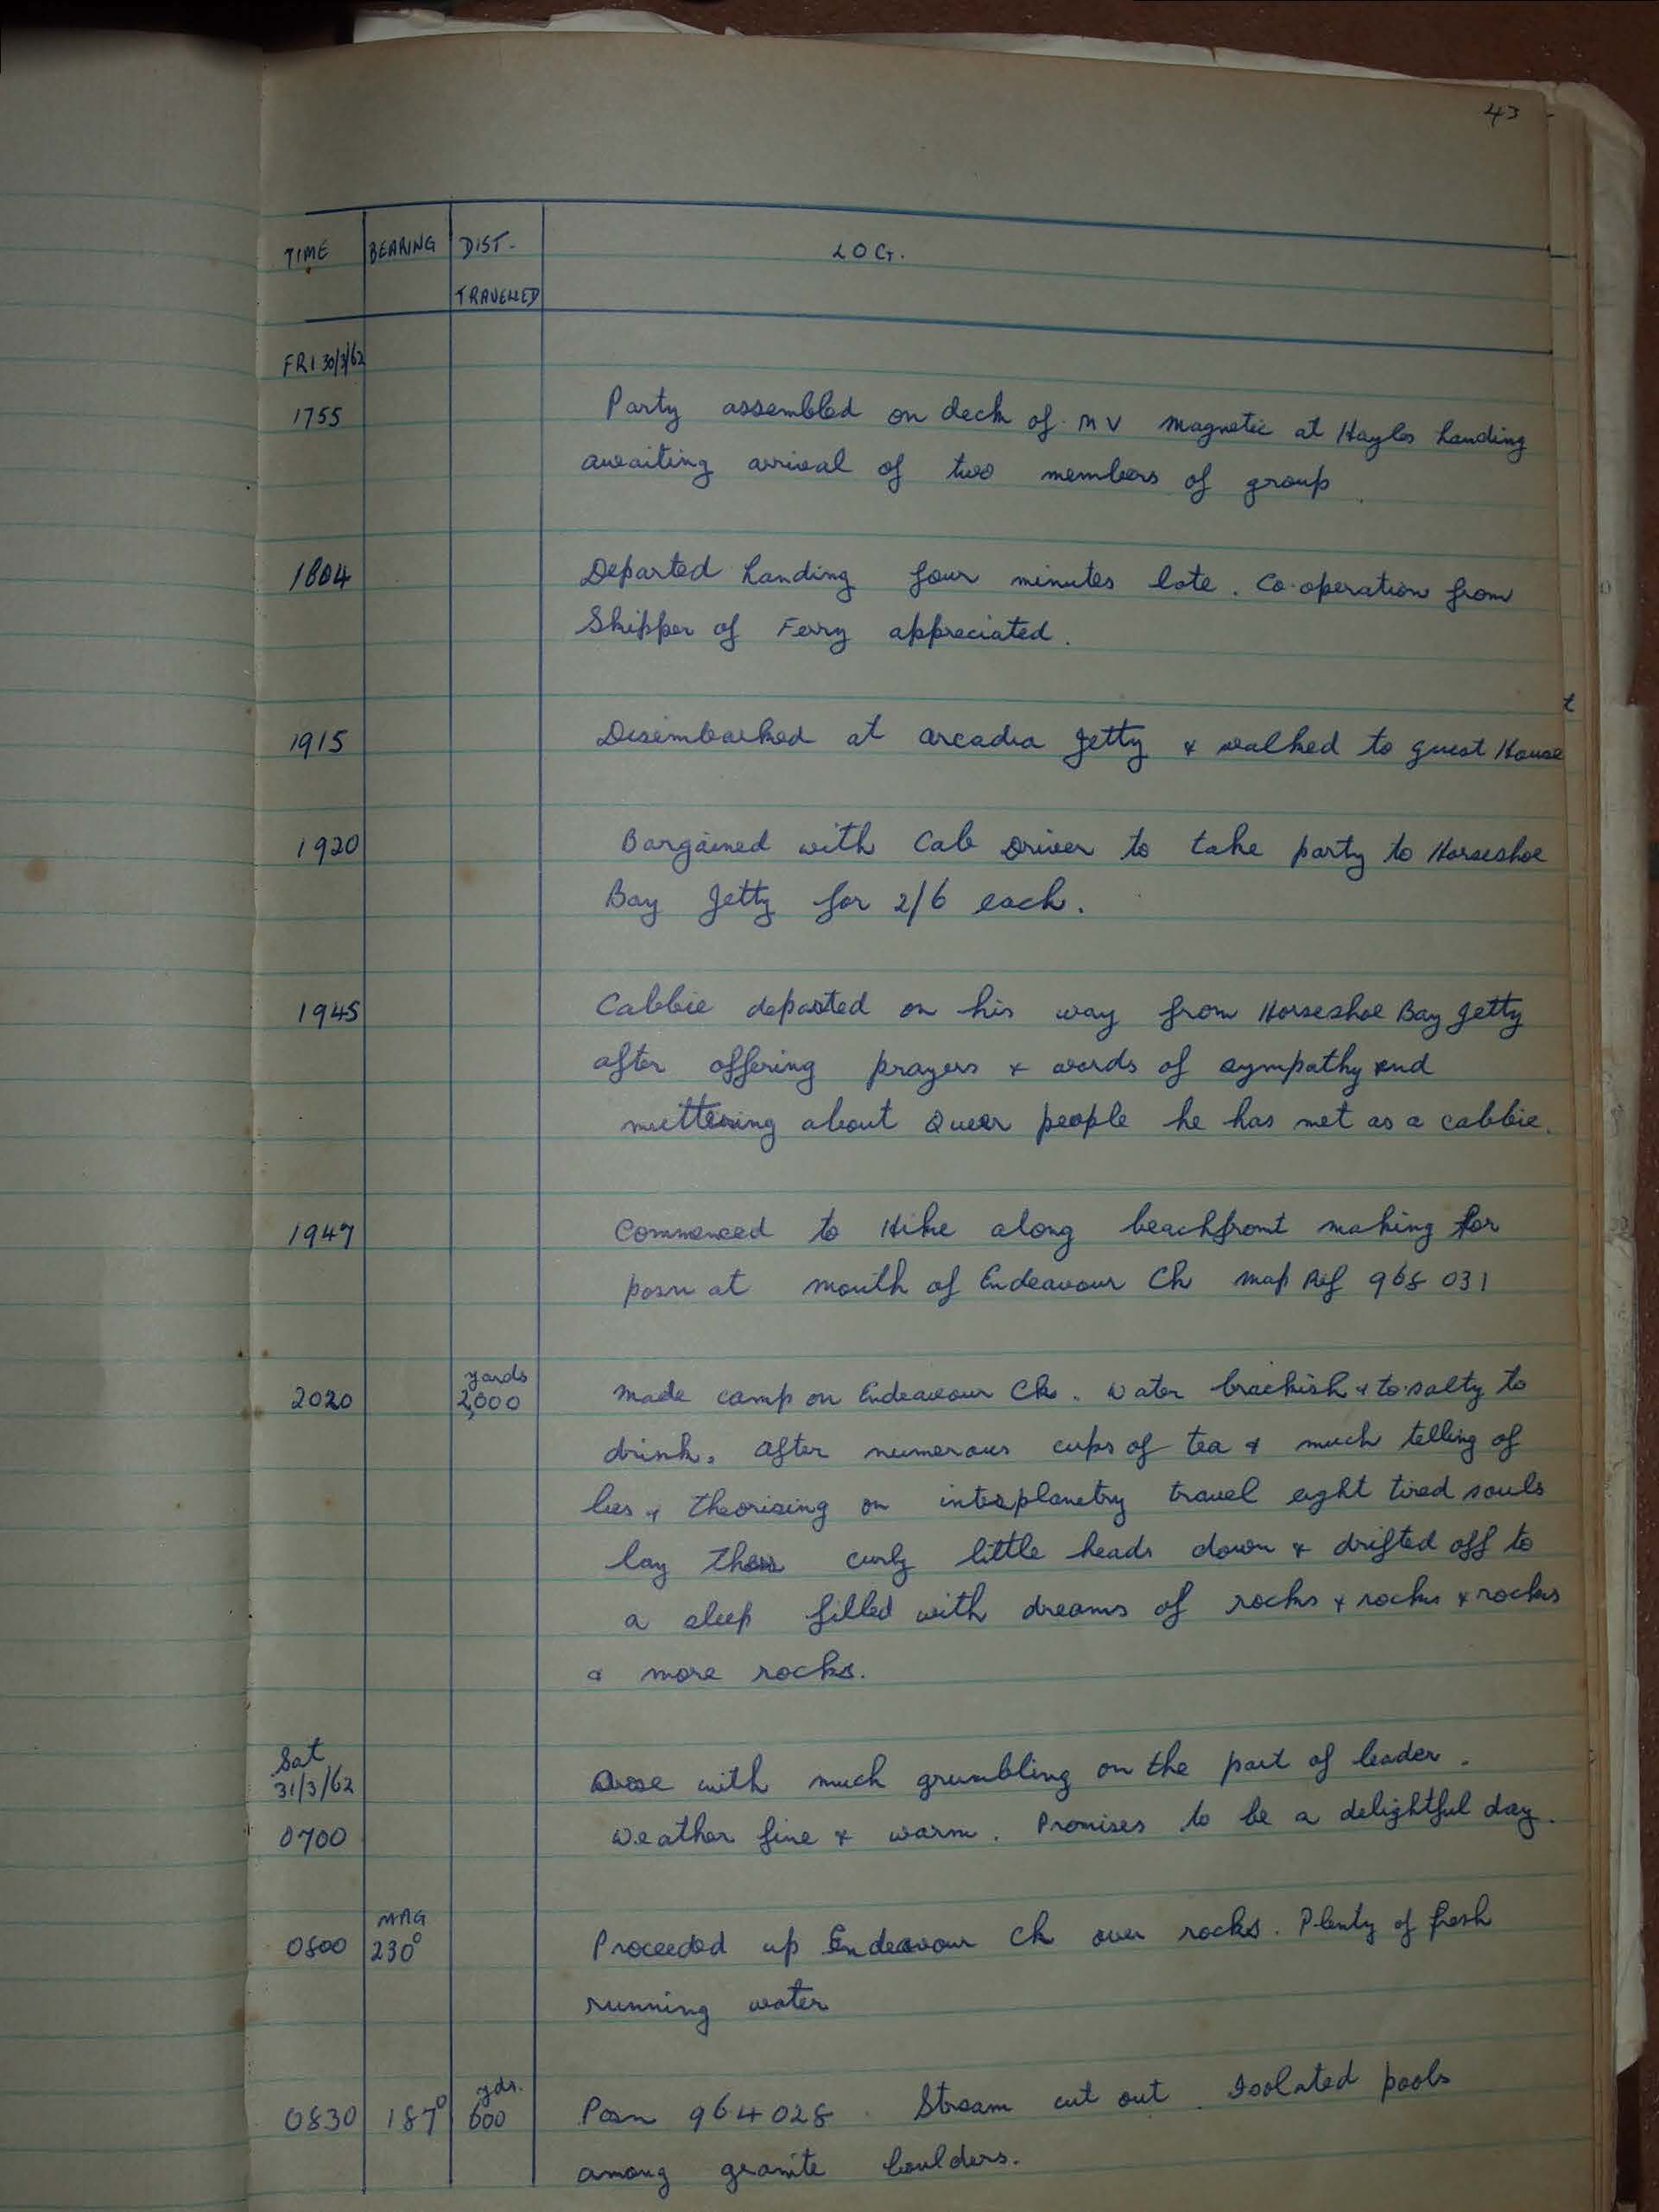 43
TIME BEARING DIST. LOG.
TRAVELLED
FRI 30/3/62
1755 Party assembled on deck of MV Magnetic at Hayles Landing
awaiting arrival of two members of group.
1804 Departed Landing four minutes late. Co-operation from
Skipper of Ferry appreciated.
1915 Disembarked at Arcadia Jetty & walked to Guest House
1920 Bargained with Cab Driver to take party to Horseshoe
Bay Jetty for 2/6 each.
1945 Cabbie departed on his way from Horseshoe Bay Jetty
after offering prayers & words of sympathy and
muttering about Queer people he has met as a cabbie.
1947 Commenced to Hike along beachfront making for
posn at mouth of Endeavour Ck Map Ref 968 031
yards
2020 2,000 Made camp on Endeavour Ck. Water brackish & to salty to
drink. After numerous cups of tea & much telling of
lies & theorising on interplanetry travel eight tired souls
lay their curly little heads down & drifted off to
a sleep filled with dreams of rocks & rocks & rocks
& more rocks.
Sat
31/3/62 Arose with much grumbling on the part of leader.
0700 Weather fine & warm. Promises to be a delightful day.
MAG
0800 230° Proceeded up Endeavour Ck over rocks. Plenty of fresh
running water
yds.
0830 187° 600 Posn 964028. Stream cut out. Isolated pools
among granite boulders.